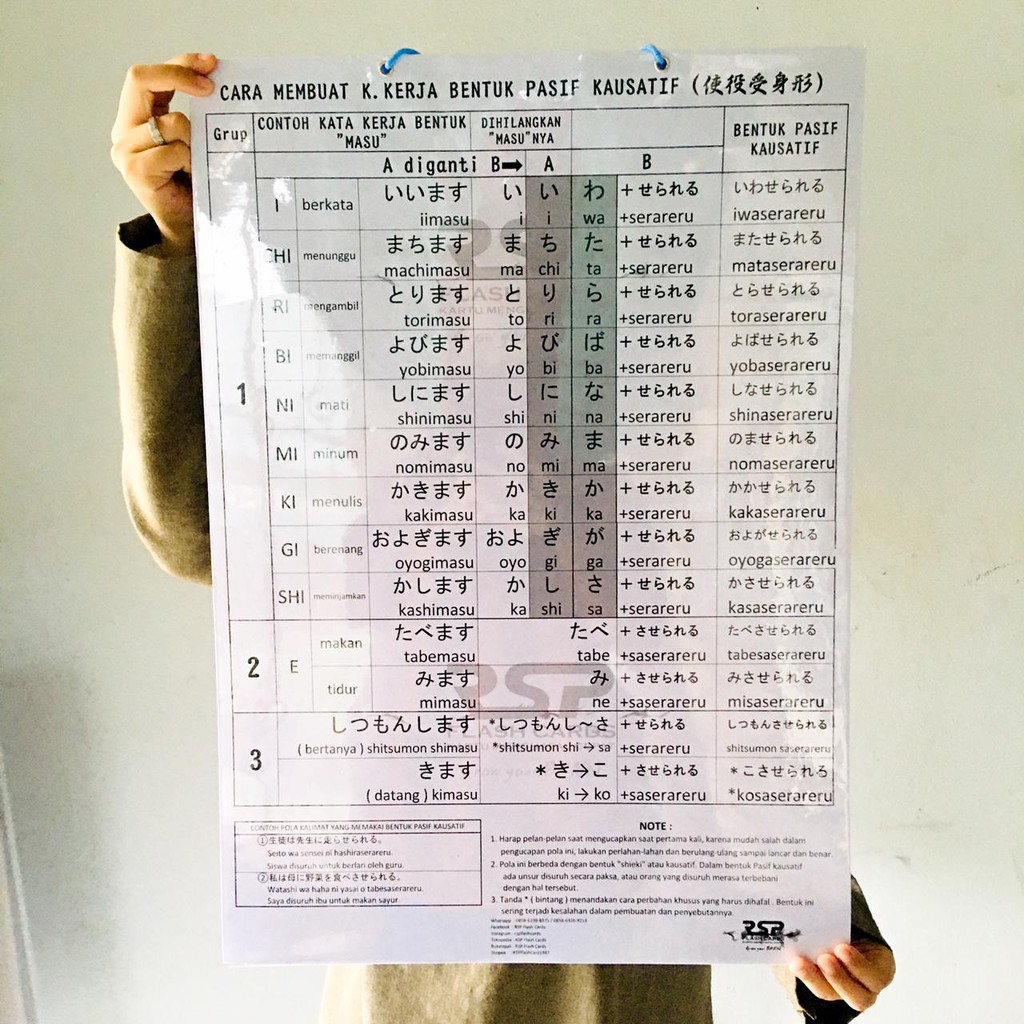 CARA MEMBUAT K.KERJA BENTUK PASIF KAUSATIF (使役受身形)
Grup CONTOH KATA KERJA BENTUK "MASU" DIHILANGKAN "MASU"NYA BENTUK PASIF KAUSATIF
A diganti B➡ A B
1
I berkata いいます い い わ +せられる いわせられる
iimasu i i wa +serareru iwaserareru
CHI menunggu まちます ま ち た +せられる またせられる
machimasu ma chi ta +serareru mataserareru
RI mengambil とります と り ら +せられる とらせられる
torimasu to ri ra +serareru toraserareru
BI memanggil よびます よ び ば +せられる よばせられる
yobimasu yo bi ba +serareru yobaserareru
NI mati しにます し に な +せられる しなせられる
shinimasu shi ni na +serareru shinaserareru
MI minum のみます の み ま +せられる のませられる
nomimasu no mi ma +serareru nomaserareru
KI menulis かきます か き か +せられる かかせられる
kakimasu ka ki ka +serareru kakaserareru
GI berenang およぎます およ ぎ が +せられる およがせられる
oyogimasu oyo gi ga +serareru oyogaserareru
SHI meminjamkan かします か し さ +せられる かさせられる
kashimasu ka shi sa +serareru kasaserareru
2 E
makan たべます たべ +させられる たべさせられる
tabemasu tabe +saserareru tabesaserareru
tidur みます み +させられる みさせられる
mimasu ne +saserareru misaserareru
3
しつもんします *しつもんし〜さ +せられる しつもんさせられる
( bertanya ) shitsumon shimasu *shitsumon shi → sa +serareru shitsumon saserareru
きます *き→こ +させられる *こさせられる
( datang ) kimasu ki → ko +saserareru *kosaserareru
CONTOH POLA KALIMAT YANG MEMAKAI BENTUK PASIF KAUSATIF
①生徒は先生に走らせられる。
Seito wa sensei ni hashiraserareru.
Siswa disuruh untuk berlari oleh guru.
②私は母に野菜を食べさせられる。
Watashi wa haha ni yasai o tabesaserareru.
Saya disuruh ibu untuk makan sayur.
NOTE :
1. Harap pelan-pelan saat mengucapkan saat pertama kali, karena mudah salah dalam
pengucapan pola ini, lakukan perlahan-lahan dan berulang-ulang sampai lancar dan benar.
2. Pola ini berbeda dengan bentuk "shieki" atau kausatif. Dalam bentuk Pasif kausatif
ada unsur disuruh secara paksa, atau orang yang disuruh merasa terbebani
dengan hal tersebut.
3. Tanda * ( bintang ) menandakan cara perbahan khusus yang harus dihafal . Bentuk ini
sering terjadi kesalahan dalam pembuatan dan penyebutannya.
RSP
FLASH CARDS
RSP
FLASH CARDS